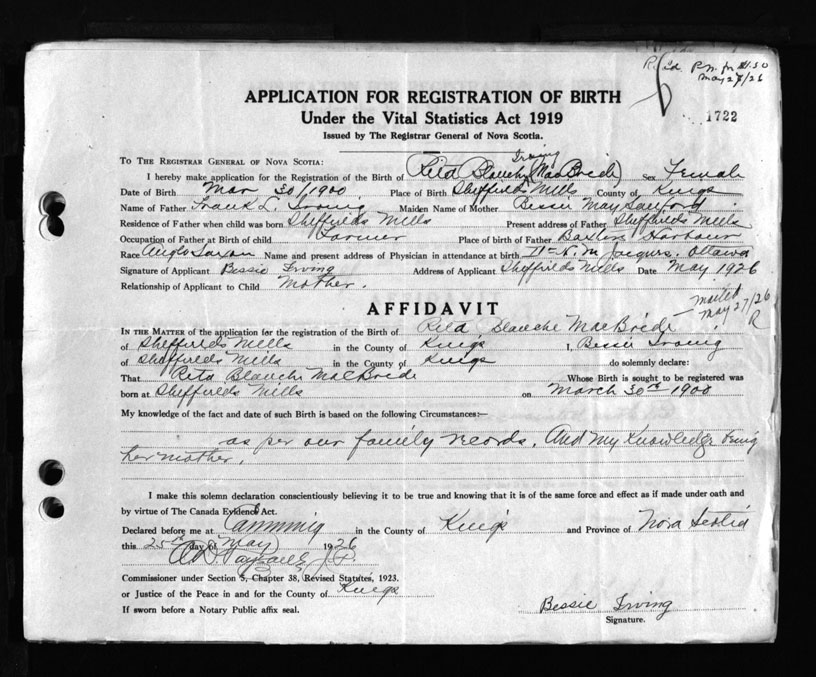 Rec'd P.N. for $1.50
May 27/26
1722
APPLICATION FOR REGISTRATION OF BIRTH
Under the Vital Statistics Act 1919
Issued by The Registrar General of Nova Scotia.
TO THE REGISTRAR GENERAL OF NOVA SCOTIA:
Irving
I hereby make application for the Registration of the Birth of Rita Blanche (MacBride) Sex Female
Date of Birth Mar 30/1900 Place of Birth Sheffields Mills County of Kings
Name of Father Frank L. Irving Maiden Name of Mother Bessie May Sanford
Residence of Father when child was born Sheffields Mills Present address of Father Sheffields Mills
Occupation of Father at Birth of child Farmer Place of birth of Father Baxters Harbour
Race Anglo Saxon Name and present address of Physician in attendance at birth Jaques. Ottawa
Signature of Applicant Bessie Irving Address of Applicant Sheffields Mills Date May 1926
Relationship of Applicant to Child Mother.
AFFIDAVIT
mailed
May 27/26
R
IN THE MATTER of the application for the registration of the Birth of Rita Blanche MacBride
of Sheffields Mills in the County of Kings I, Bessie Irving
of Sheffields Mills in the County of Kings do solemnly declare:
That Rita Blanche MacBride Whose Birth is sought to be registered was
born at Sheffields Mills on March 30th 1900
My knowledge of the fact and date of such Birth is based on the following Circumstances:—
as per our family records. And my knowledge being
her mother.
I make this solemn declaration conscientiously believing it to be true and knowing that it is of the same force and effect as if made under oath and
by virtue of The Canada Evidence Act.
Declared before me at Canning in the County of Kings and Province of Nova Scotia
this 25th day of May 1926
J.P.
Commissioner under Section 5, Chapter 38, Revised Statutes, 1923.
or Justice of the Peace in and for the County of Kings
If sworn before a Notary Public affix seal.
Bessie Irving
Signature.